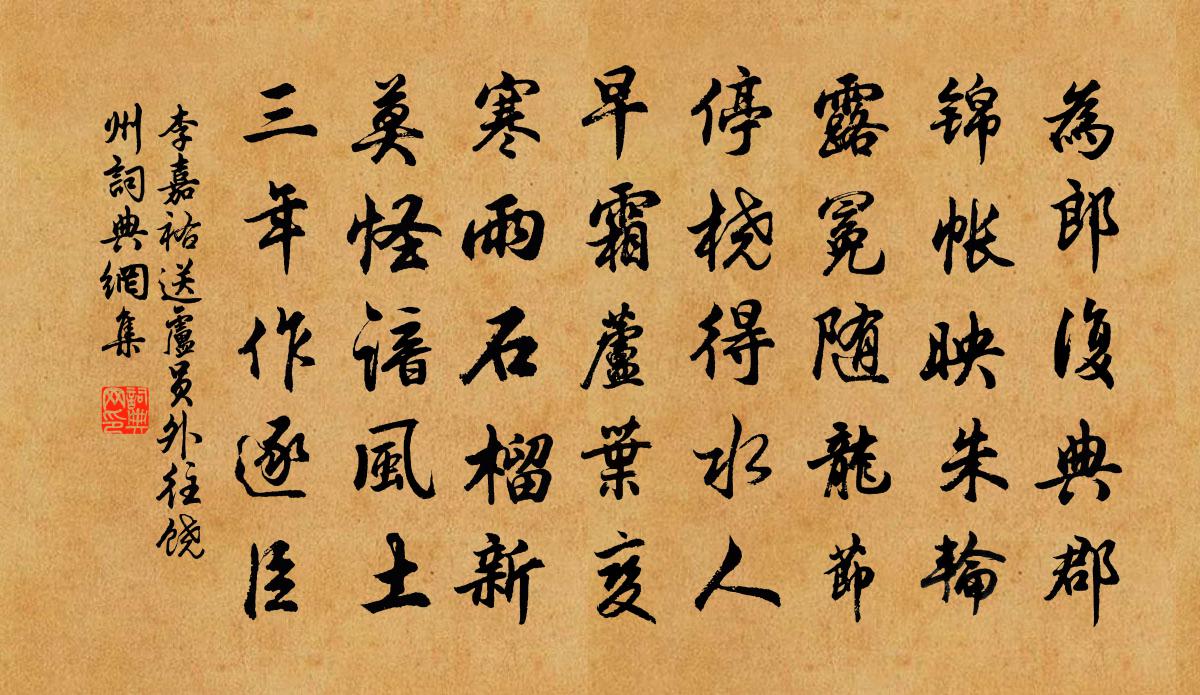 為郎復典郡
锦帐映朱輪
露冕随龍節
停桡得水人
早霜蘆葉变
寒雨石榴新
莫怪谙風土
三年作逐臣
李嘉祐送盧員外往饶
州詞典網集
詞典网印